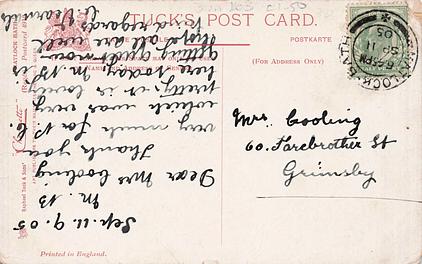 TUCK'S POST CARD.
POSTKARTE
(FOR ADDRESS ONLY)
MATLOCK-BATH
SP 11
05
Mrs. Cooling
60. Farebrother St
Grimsby
Sep. 11. 9. 05
M. B
Dear Mrs Cooling
Thank you
very much for P.C.
which was very
pretty. it is lovely
here today. M. B. is
getting
Hope all are well
regards
Raphael Tuck & Sons'
Printed in England.